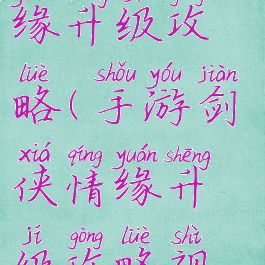 缘升级攻
lüè shǒu yóu jiàn
略(手游剑
xiá qíng yuán shēng
侠情缘升
jí gōng lüè shì
级攻略视